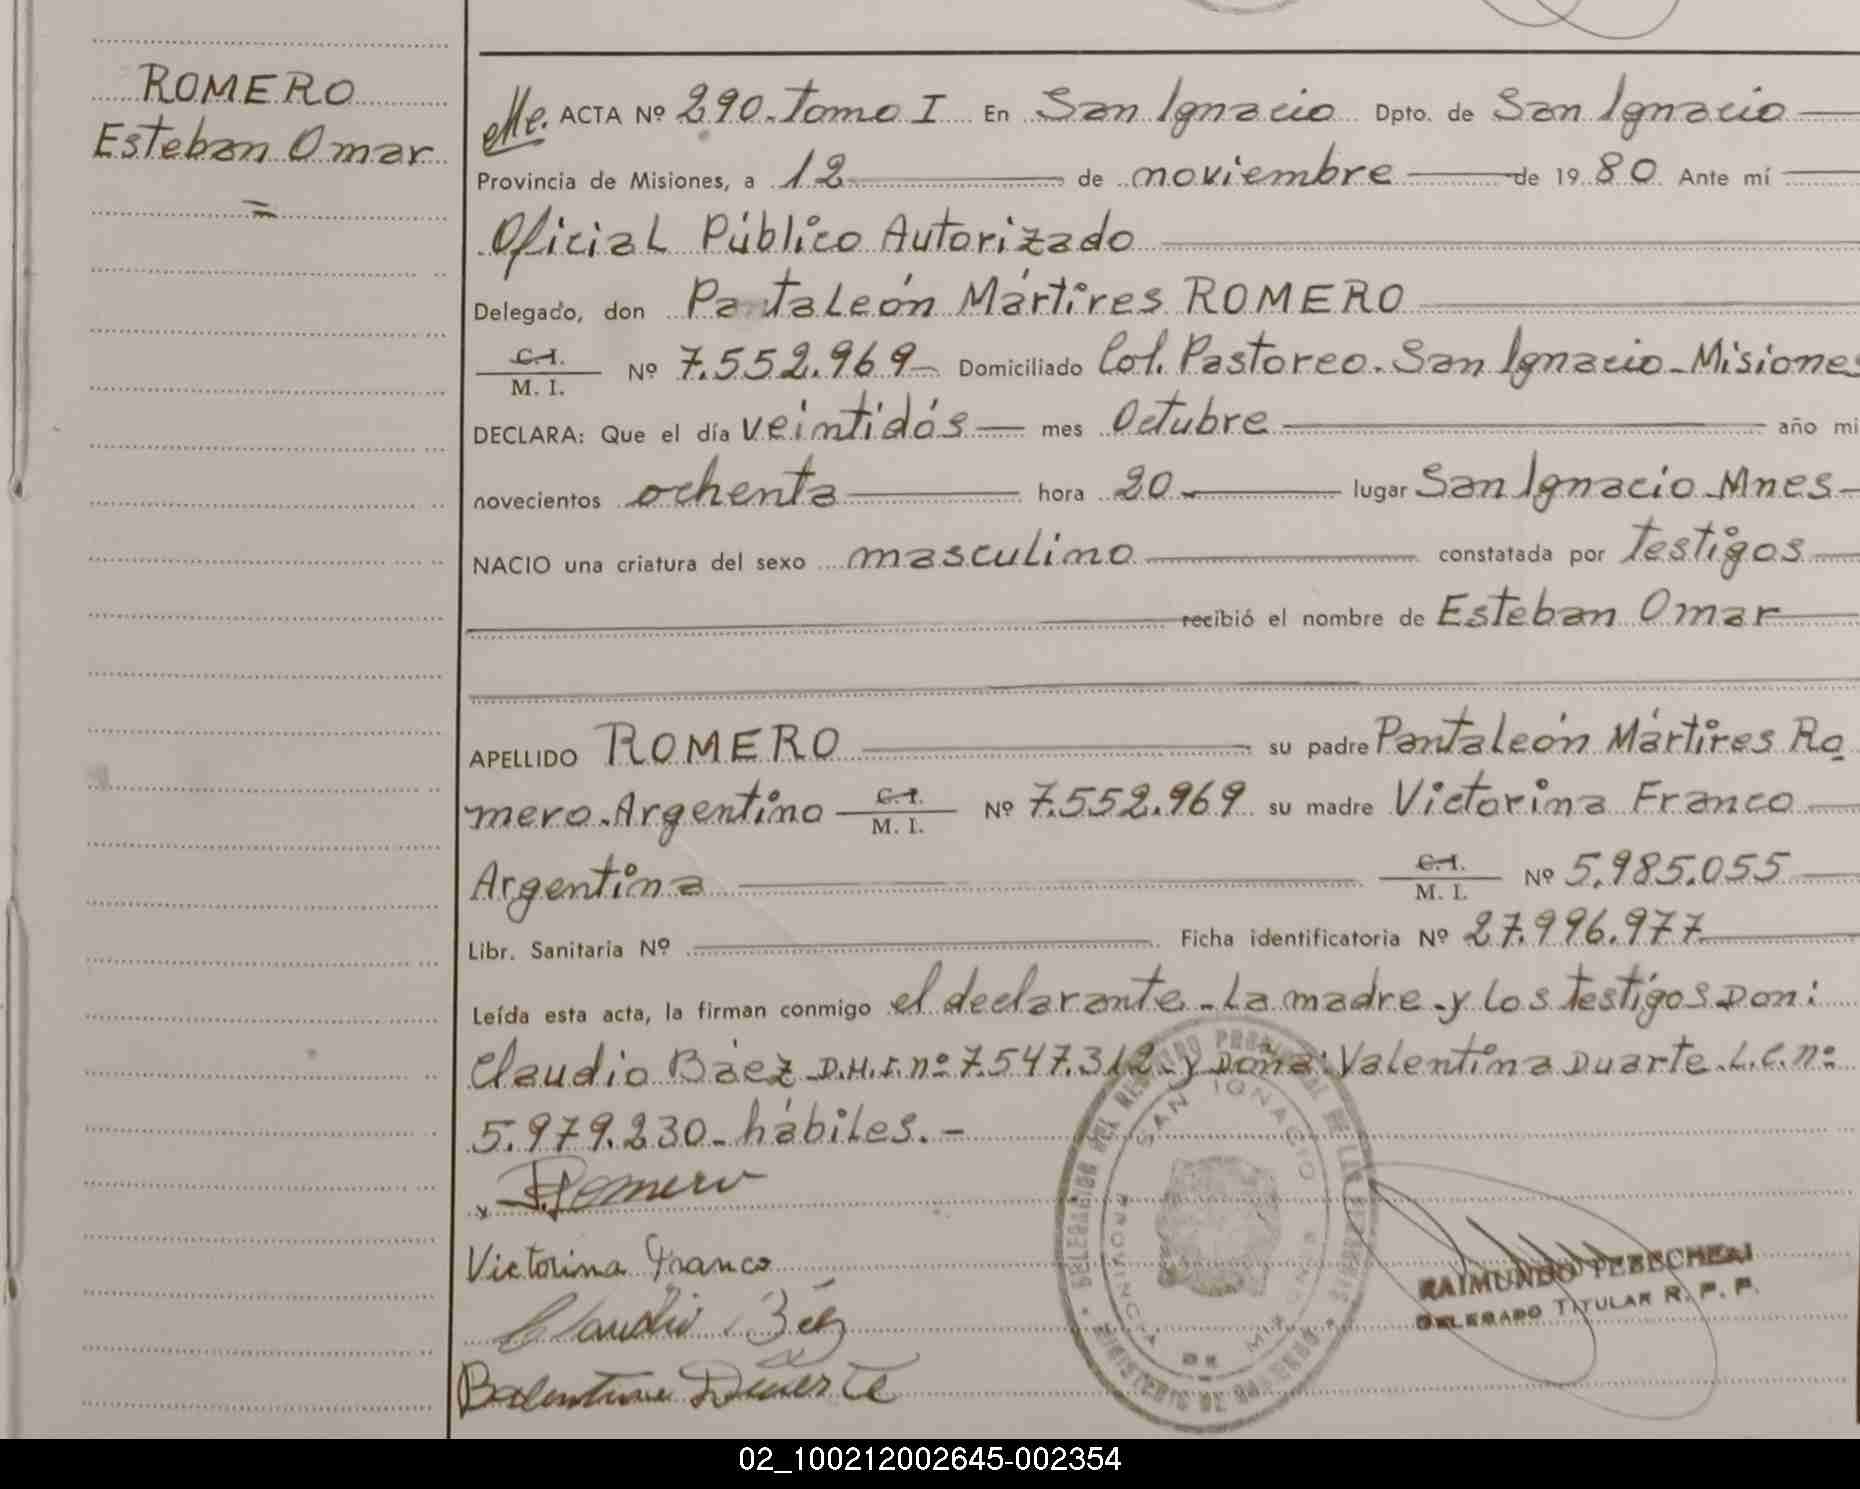 ROMERO
Esteban Omar
ACTA Nº 290. Tomo I En San Ignacio Dpto. de San Ignacio
Provincia de Misiones, a 12 de noviembre de 1980 Ante mí
Oficial Público Autorizado
Delegado, don Pantaleón Mártires ROMERO
C.I.
M. I. Nº 7.552.969 Domiciliado Col. Pastoreo. San Ignacio-Misiones
DECLARA: Que el día veintidós mes Octubre año mi
novecientos ochenta hora 20 lugar San Ignacio-Mnes
NACIO una criatura del sexo masculino constatada por testigos
recibió el nombre de Esteban Omar
APELLIDO ROMERO su padre Pantaleón Mártires Ro
mero. Argentino C.I. M. I. Nº 7.552.969 su madre Victorina Franco
Argentina C.I. M. I. Nº 5.985.055
Libr. Sanitaria Nº Ficha identificatoria Nº 27.996.977
Leída esta acta, la firman conmigo el declarante-La madre-y los testigos Don:
Claudio Báez D.N.I. nº 7.547.312-y Doña: Valentina Duarte.L.C. nº
5.979.230-hábiles.-
Romero
Victorina Franco
Claudio Báez
Balentina Duarte
SAN IGNACIO
PROVINCIA DE MISIONES
RAIMUNDO
DELEGADO TITULAR R. P. P.
02_100212002645-002354